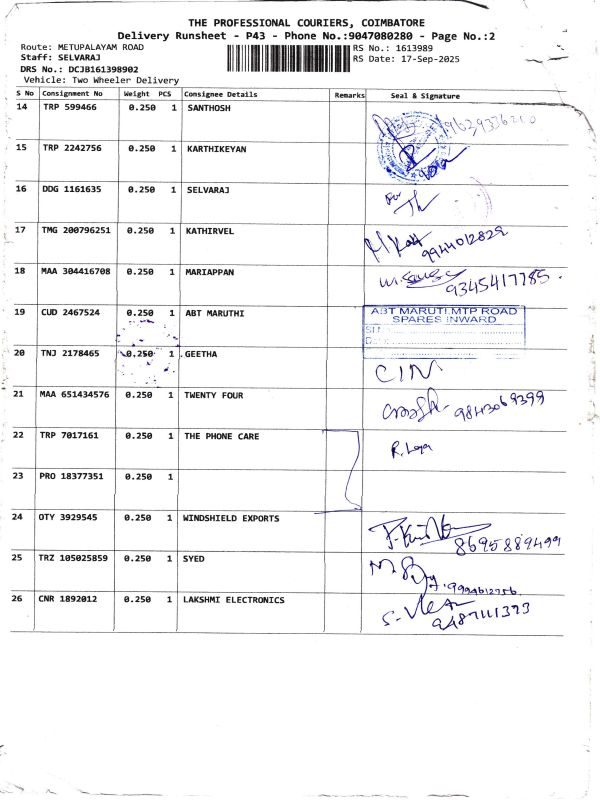 THE PROFESSIONAL COURIERS, COIMBATORE
Delivery Runsheet - P43 - Phone No.:9047080280 - Page No.:2
Route: METUPALAYAM ROAD RS No.: 1613989
Staff: SELVARAJ RS Date: 17-Sep-2025
DRS No.: DCJB161398902
Vehicle: Two Wheeler Delivery
S No Consignment No Weight PCS Consignee Details Remarks Seal & Signature
14 TRP 599466 0.250 1 SANTHOSH
15 TRP 2242756 0.250 1 KARTHIKEYAN
16 DDG 1161635 0.250 1 SELVARAJ
For
17 TMG 200796251 0.250 1 KATHIRVEL
9944012829
18 MAA 304416708 0.250 1 MARIAPPAN
9345417785.
19 CUD 2467524 0.250 1 ABT MARUTHI
ABT MARUTI.MTP ROAD
SPARES INWARD
20 TNJ 2178465 0.250 1 GEETHA
21 MAA 651434576 0.250 1 TWENTY FOUR
9843069399
22 TRP 7017161 0.250 1 THE PHONE CARE
23 PRO 18377351 0.250 1
24 OTY 3929545 0.250 1 WINDSHIELD EXPORTS
8695889499
25 TRZ 105025859 0.250 1 SYED
9994612756
26 CNR 1892012 0.250 1 LAKSHMI ELECTRONICS
9487111373